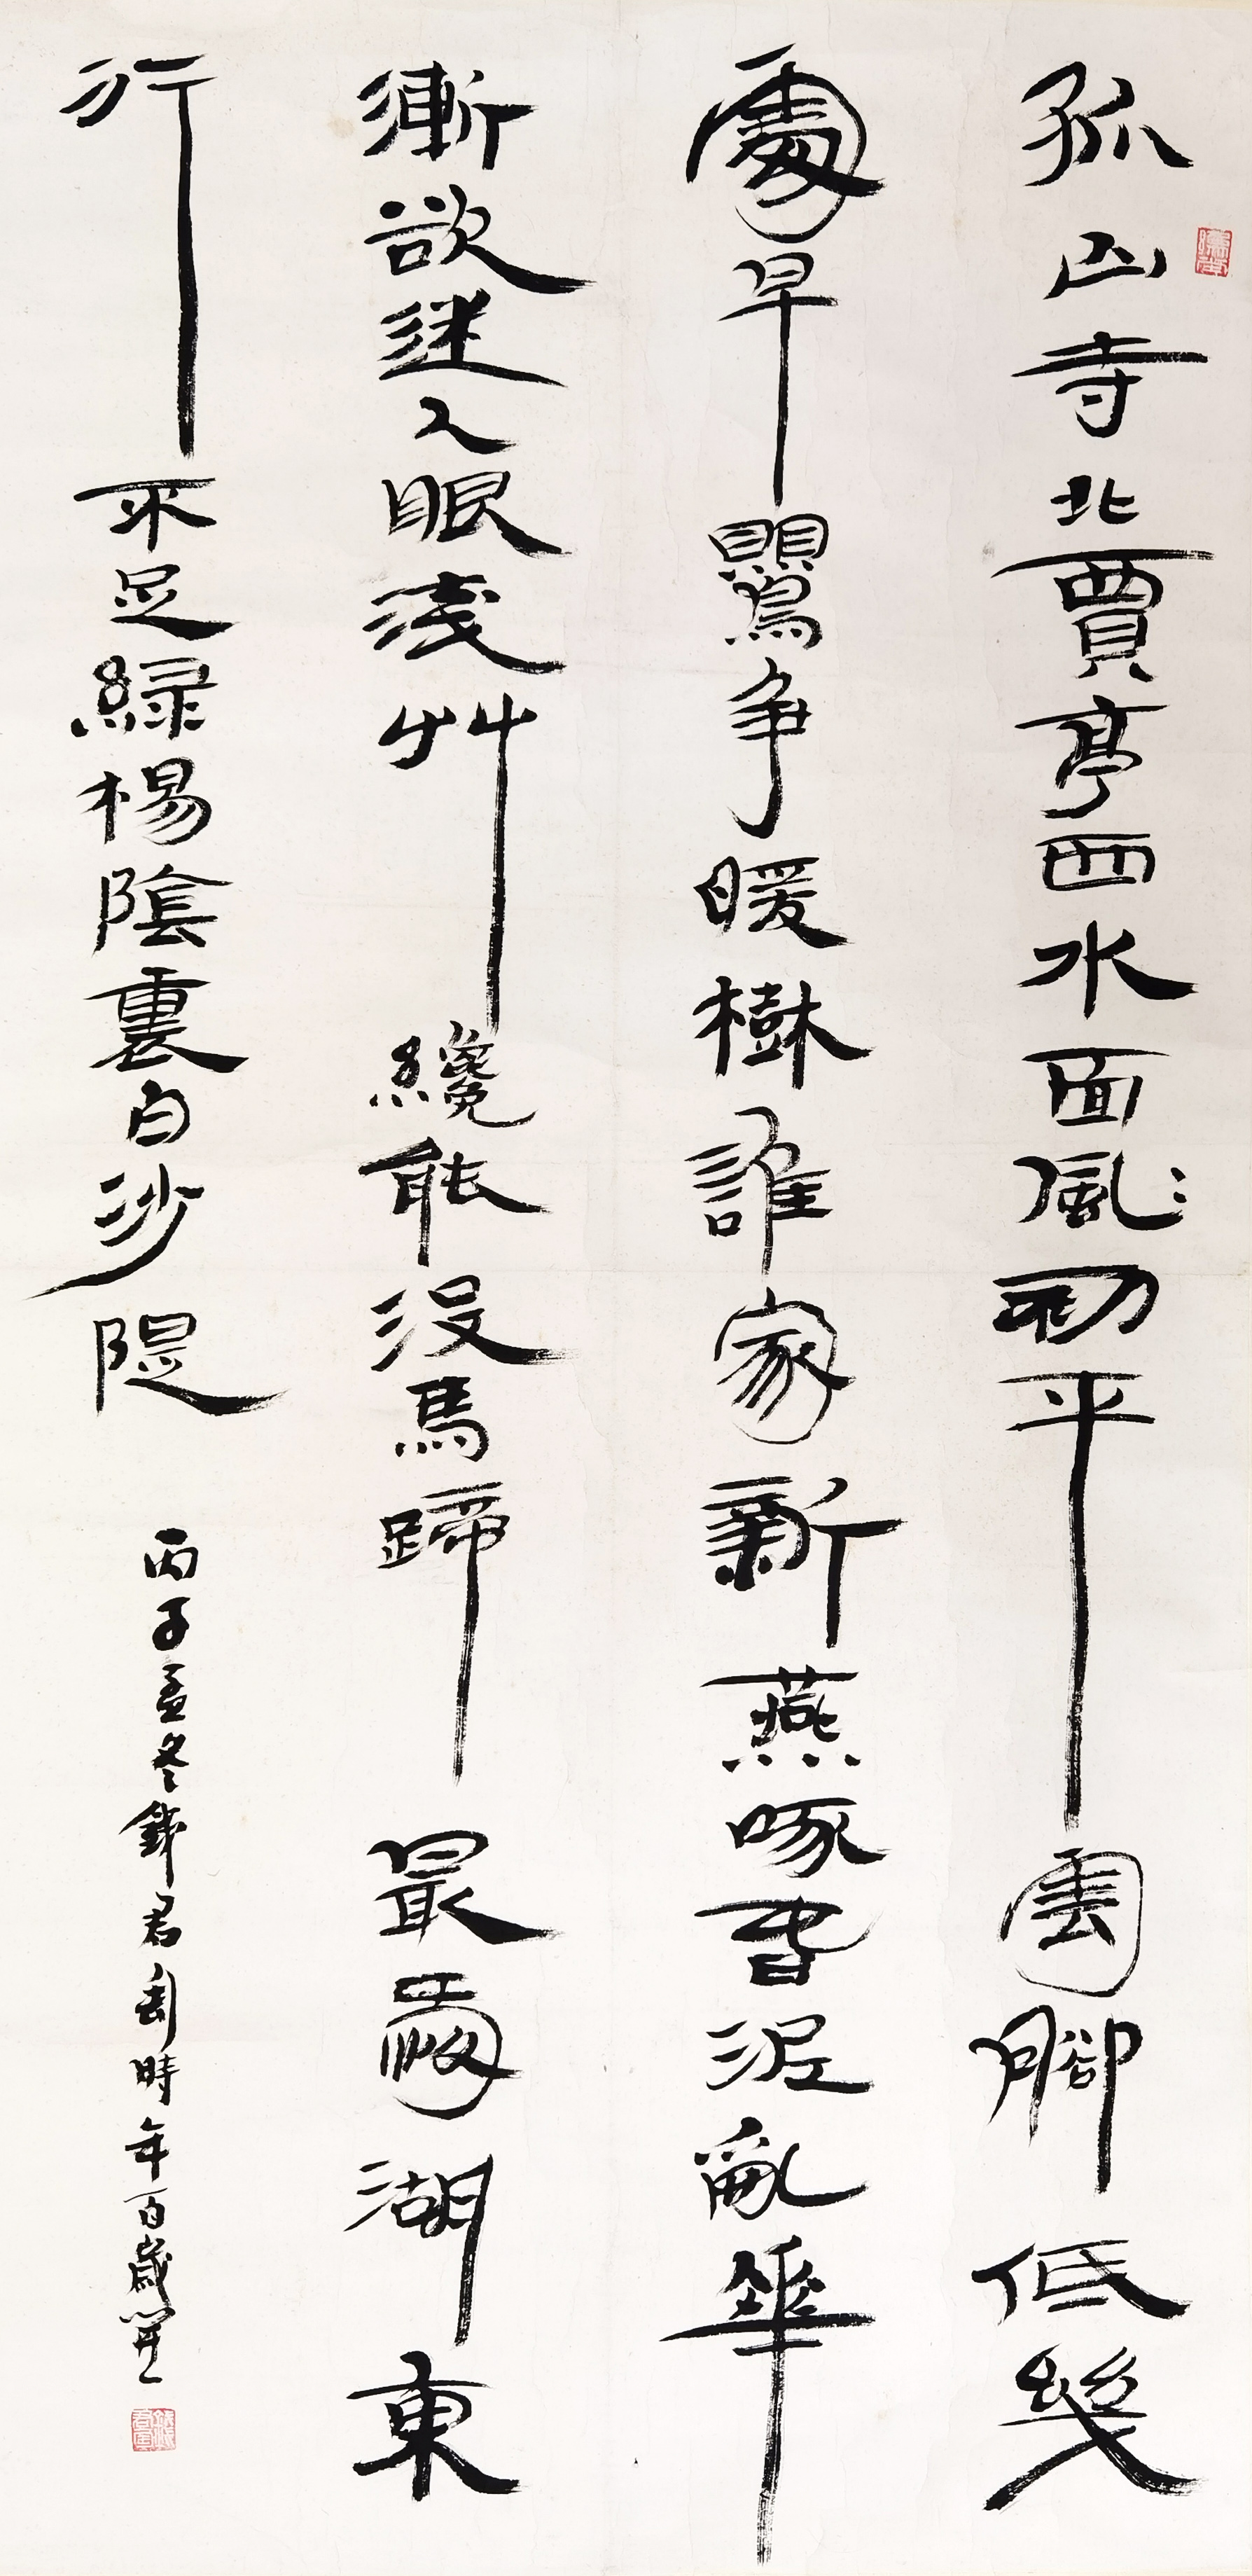 孤山寺北賈亭西水面風初平雲腳低幾
處早鸎爭暖樹誰家新燕啄春泥亂華
漸欲迷人眼淺艸纔能沒馬蹄最愛湖東
行不足綠楊陰裏白沙隄
丙子孟冬錢君匋時年百歲開一